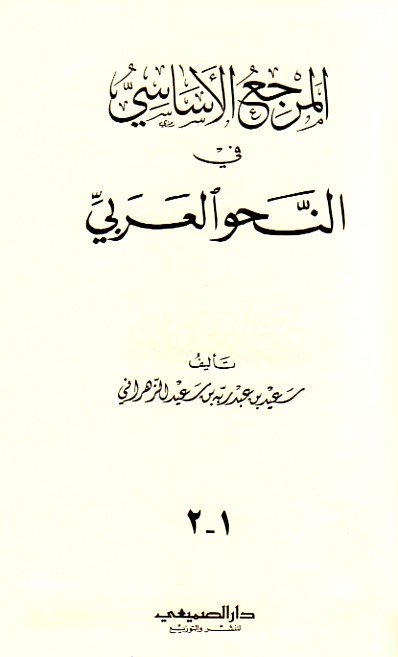 المَرْجِعُ الأَسَاسِيُّ
في
النَّحوِ العَرَبيِّ
تأليفُ
سَعيد بن عبد ربّه بن سَعيد الزّهراني
١-٢
دار الصميعي
للنشر والتوزيع